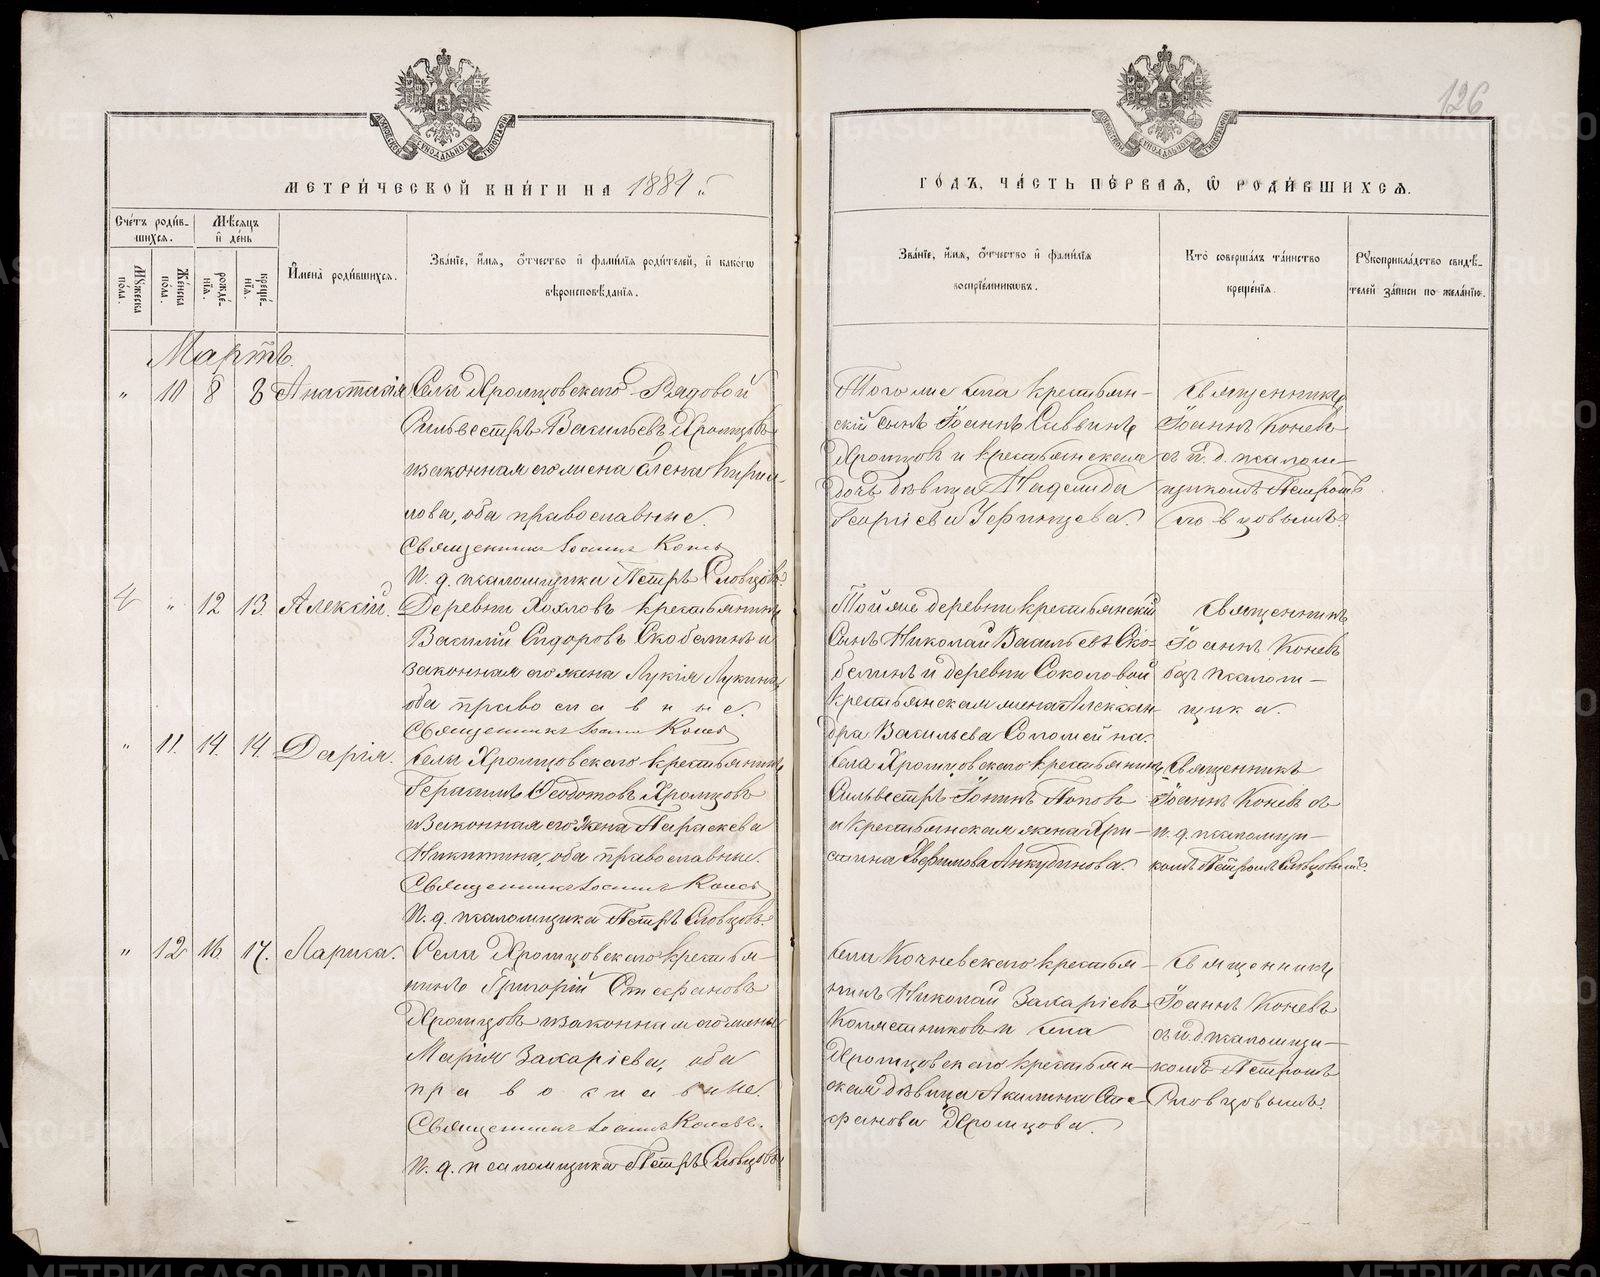 126
МЕТРИ́ЧЕСКОЙ КНИ́ГИ НА 1884 г.
ГО́ДЪ, ЧА́СТЬ ПЕ́РВАЯ, Ѿ РОДИ́ВШИХСѦ.
Сче́тъ роди́в-
шихсѧ.
Мѣ́сѧцъ
и҆ де́нь
Мꙋ́жеска
по́ла.
Же́нска
по́ла.
рожде́-
нїѧ.
креще́-
нїѧ.
И҆мена̀ роди́вшихсѧ.
Зва́нїе, и҆́мѧ, ѻ҆́тчество и҆ фами́лїѧ роди́телей, и҆ како́гѡ
вѣроисповѣ́данїѧ.
Зва́нїе, и҆́мѧ, ѻ҆́тчество и҆ фами́лїѧ
воспрїе́мникѡвъ.
Кто̀ соверша́лъ та́инство
креще́нїѧ.
Рꙋкоприкла́дство свидѣ́-
телей за́писи по жела́нїю.
Мартъ.
" 10 8 8 Анастасія
Села Хромцовскаго Рядовой
Сильвестръ Васильевъ Хромцовъ
и законная его жена Елена Кирил-
лова, оба православные.
Священникъ Іоаннъ Коневъ
И. д. псаломщика Петръ Словцовъ
Того же села крестьян-
скій сынъ Іоаннъ Саввинъ
Хромцовъ и крестьянская
дочь дѣвица Надежда
Георгіева Уфинцева.
Священникъ
Іоаннъ Коневъ
съ и. д. псалом-
щикомъ Петромъ
Словцовымъ.
4 " 12 13 Алексій.
Деревни Хохловъ крестьянинъ
Василій Сидоровъ Скобелинъ и
законная его жена Лукія Лукина,
оба православные.
Священникъ Іоаннъ Коневъ
Той же деревни крестьянскій
сынъ Николай Васильевъ Ско-
белинъ и деревни Соколовой
крестьянская жена Алексан-
дра Васильева Соломеина.
Священникъ
Іоаннъ Коневъ
безъ псалом-
щика.
" 11. 14. 14. Дарія.
Села Хромцовскаго крестьянинъ
Герасимъ Ѳеодотовъ Хромцовъ
и законная его жена Параскева
Никитина, оба православные.
Священникъ Іоаннъ Коневъ
И. д. псаломщика Петръ Словцовъ.
Села Хромцовскаго крестьянинъ
Сильвестръ Іонинъ Поповъ
и крестьянская жена Хри-
стина Ефимова Анкудинова.
Священникъ
Іоаннъ Коневъ съ
и. д. псаломщи-
комъ Петромъ Словцовымъ.
" 12 16. 17. Лариса.
Села Хромцовскаго крестья-
нинъ Григорій Стефановъ
Хромцовъ и законная его жена
Марія Захаріева, оба
православные.
Священникъ Іоаннъ Коневъ.
И. д. псаломщика Петръ Словцовъ
Села Кочневскаго крестья-
нинъ Николай Захаріевъ
и села
Хромцовскаго крестьян-
ская дѣвица Акилина Сте-
фанова Хромцова.
Священникъ
Іоаннъ Коневъ
съ и. д. псаломщи-
комъ Петромъ
Словцовымъ.
METRIKI.GASO-URAL.RU